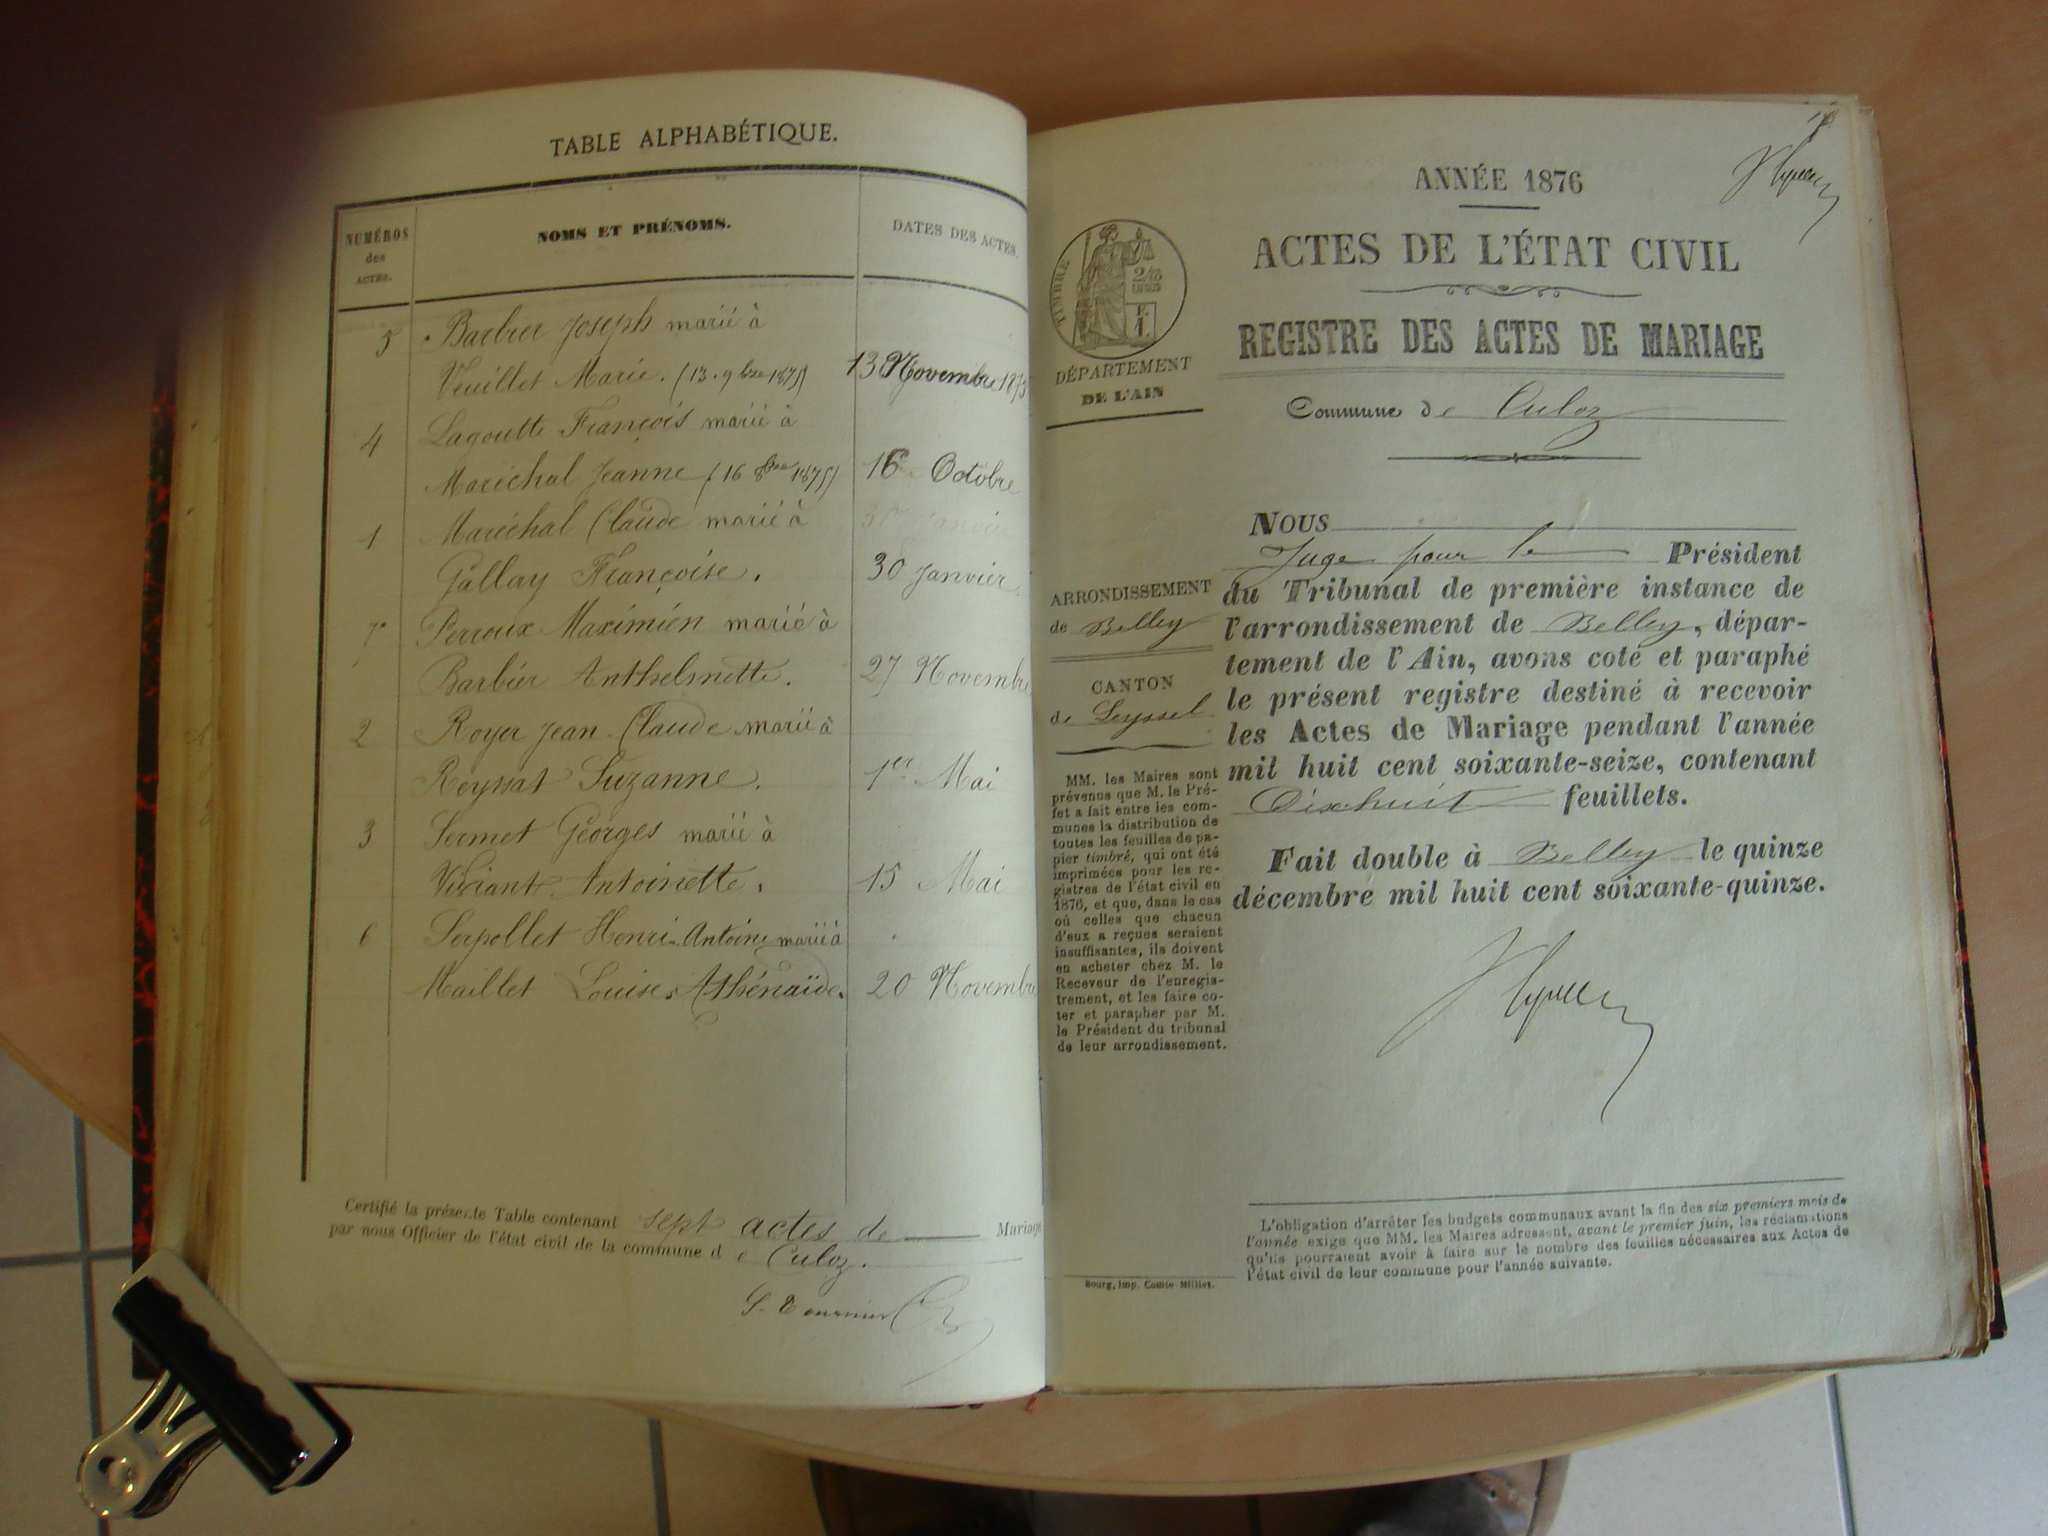 TABLE ALPHABÉTIQUE.
NUMÉROS
des
ACTES.
NOMS ET PRÉNOMS.
DATES DES ACTES.
5 Barbier Joseph marié à
Veuillet Marie. (13. 9bre 1875) 13 Novembre 1875
4 Lagoutte François marié à
Maréchal Jeanne (16 8bre 1875) 16 Octobre
1 Maréchal Claude marié à
Gallay Françoise. 30 Janvier
7 Perroux Maximien marié à
Barbier Anthelmette. 27 Novembre
2 Royer Jean Claude marié à
Reyssat Suzanne. 1er Mai
3 Sermet Georges marié à
Antoinette. 15 Mai
6 Serpollet Henri-Antoine marié à
Maillet Louise Athénaïde. 20 Novembre
Certifié la présente Table contenant sept actes de Mariage
par nous Officier de l'état civil de la commune de Culoz.
ANNÉE 1876
ACTES DE L'ÉTAT CIVIL
REGISTRE DES ACTES DE MARIAGE
TIMBRE
DÉPARTEMENT
DE L'AIN
Commune de Culoz
NOUS
Juge pour le Président
du Tribunal de première instance de
l'arrondissement de Belley, dépar-
tement de l'Ain, avons coté et paraphé
le présent registre destiné à recevoir
les Actes de Mariage pendant l'année
mil huit cent soixante-seize, contenant
Dixhuit feuillets.
Fait double à Belley le quinze
décembre mil huit cent soixante-quinze.
ARRONDISSEMENT
de Belley
CANTON
de Seyssel
MM. les Maires sont
prévenus que M. le Pré-
fet a fait entre les com-
munes la distribution de
toutes les feuilles de pa-
pier timbré, qui ont été
imprimées pour les re-
gistres de l'état civil en
1876, et que, dans le cas
où celles que chacun
d'eux a reçues seraient
insuffisantes, ils doivent
en acheter chez M. le
Receveur de l'enregis-
trement, et les faire co-
ter et parapher par M.
le Président du tribunal
de leur arrondissement.
L'obligation d'arrêter les budgets communaux avant la fin des six premiers mois de
l'année exige que MM. les Maires adressent, avant le premier juin, les réclamations
qu'ils pourraient avoir à faire sur le nombre des feuilles nécessaires aux Actes de
l'état civil de leur commune pour l'année suivante.
Bourg, Imp. Comte-Milliet.